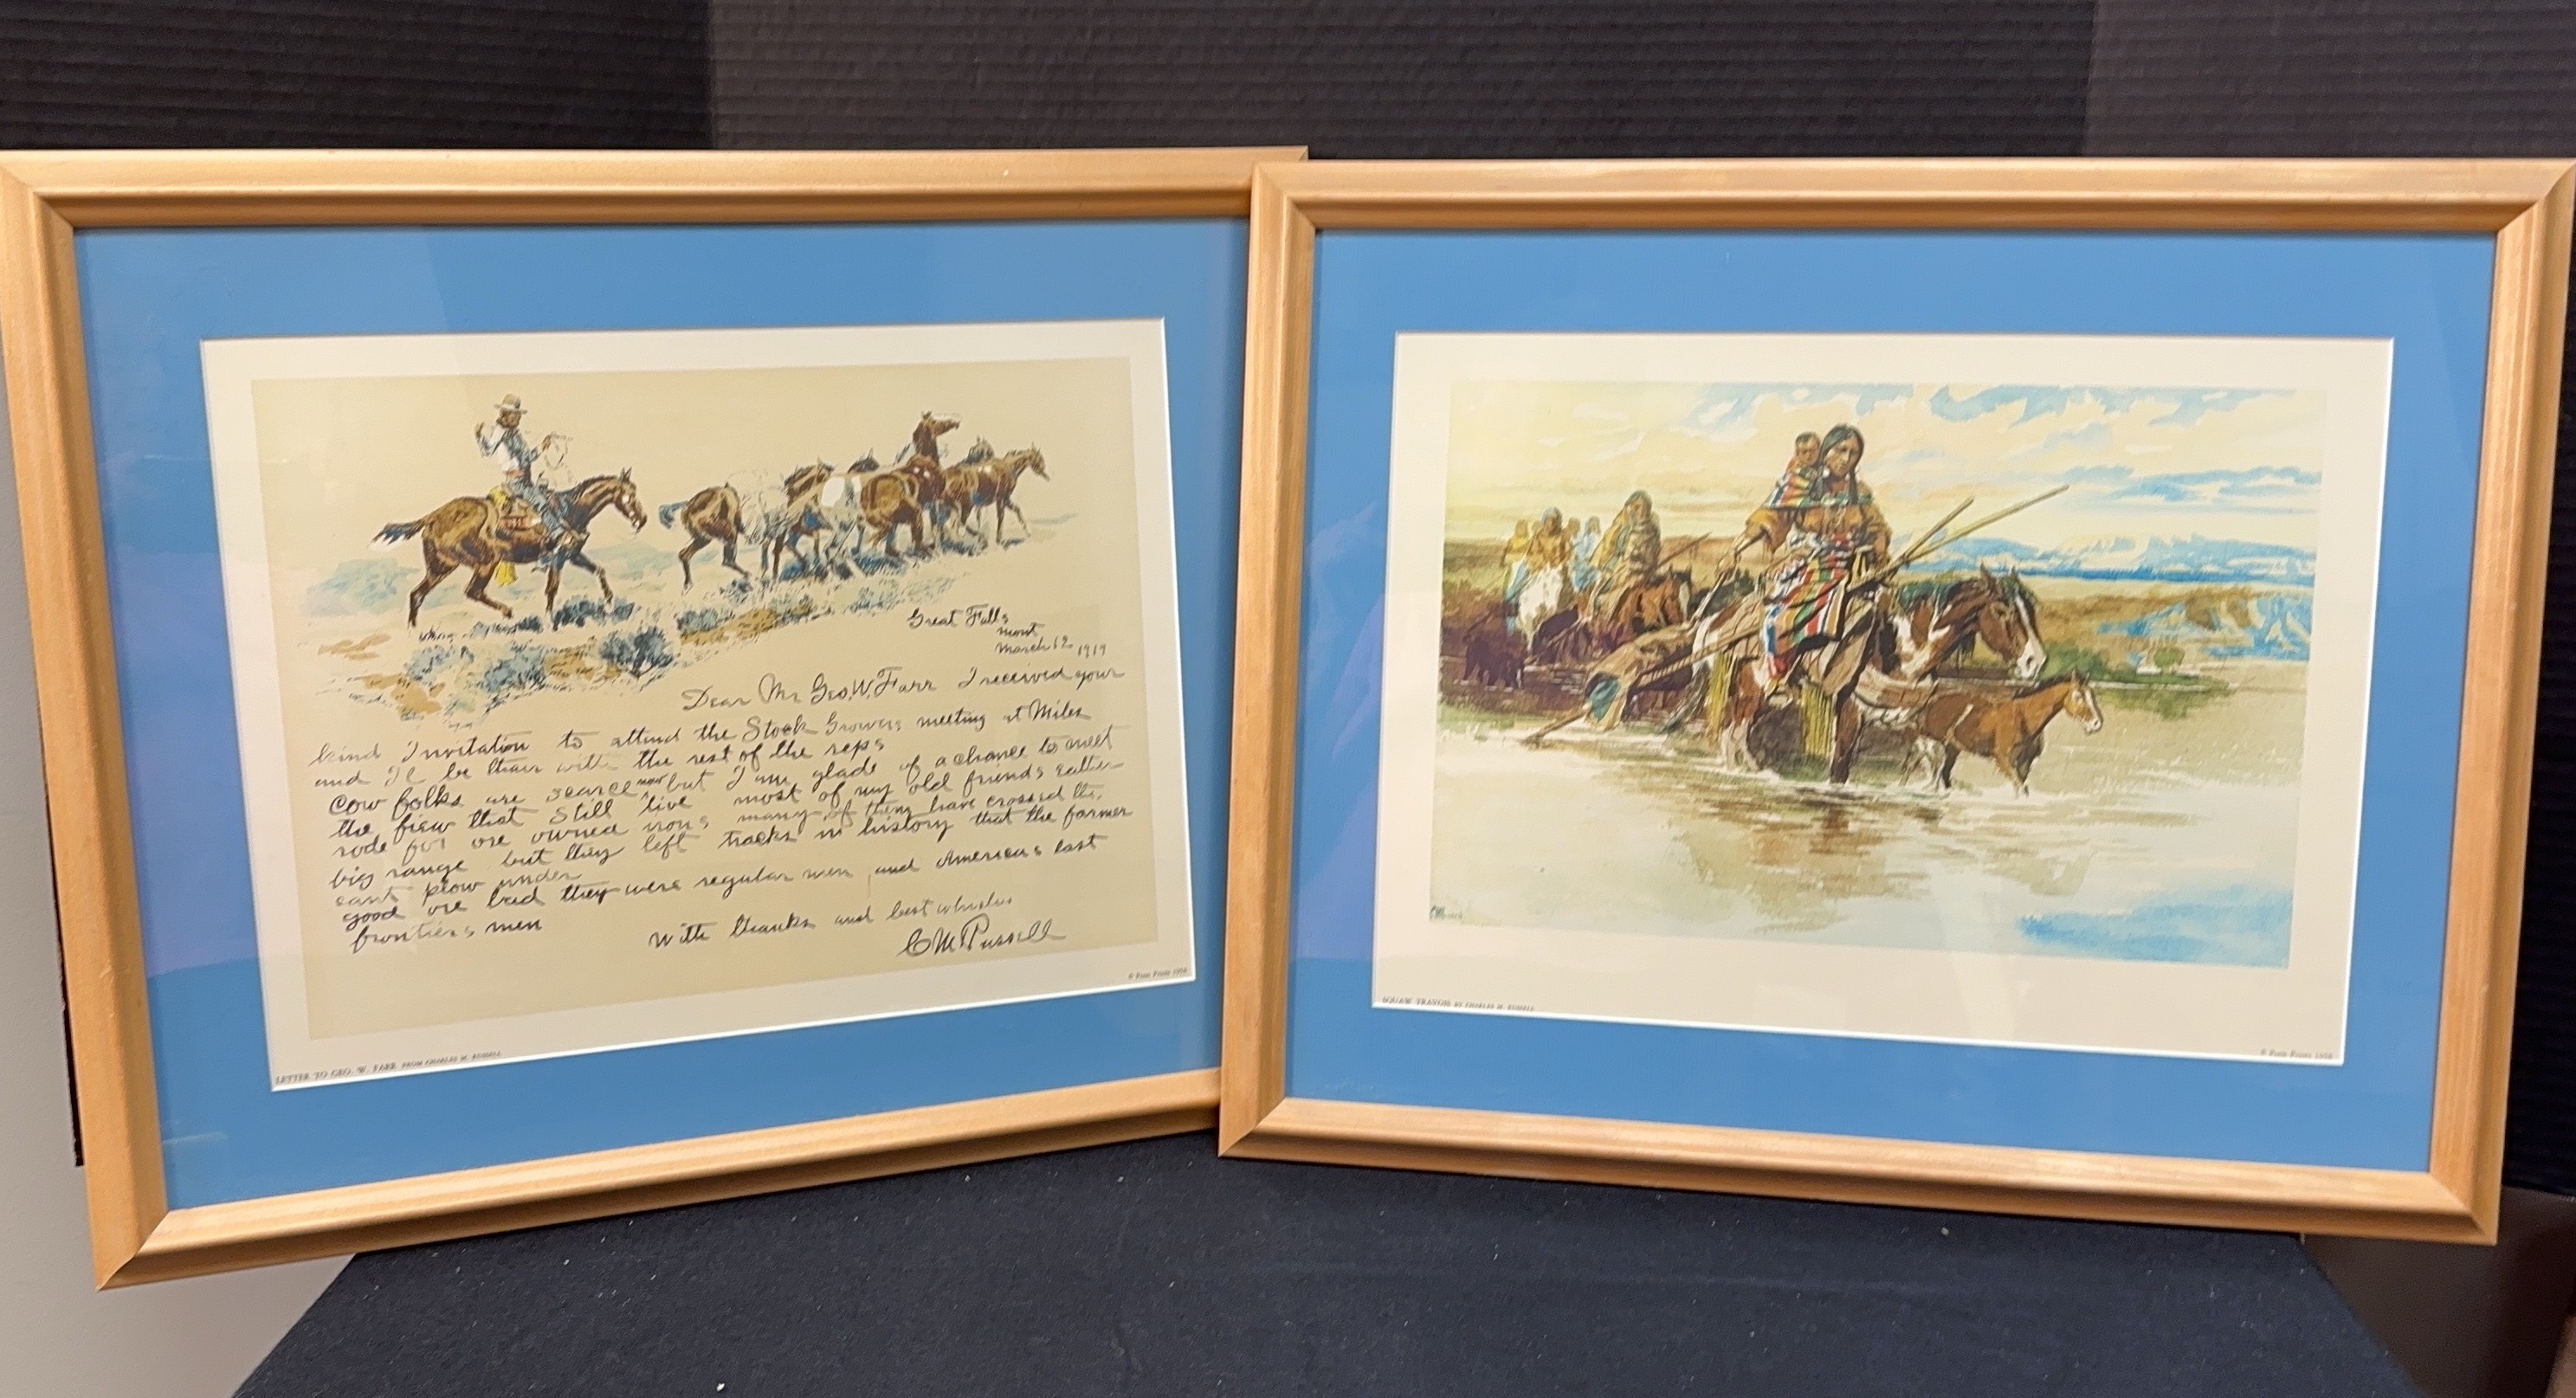 Great Falls
Mont
March 12 1919
Dear Mr Geo. W. Farr I received your
kind Invitation to attend the Stock Growers meeting at Miles
and Il be thair with the rest of the reps
Cow folks are scarce now but I am glade of a chance to meet
the fiew that still live most of my old friends eather
rode for ore owned irons many of them have crossed the
big range but they left tracks in history that the farmer
cant plow under
good ore bad they were regular men and Americas last
frontiers men
With thanks and best whishes
CM Russell
LETTER TO GEO. W. FARR FROM CHARLES M. RUSSELL
© Penn Prints 1958
SQUAW TRAVOIS BY CHARLES M. RUSSELL
© Penn Prints 1958